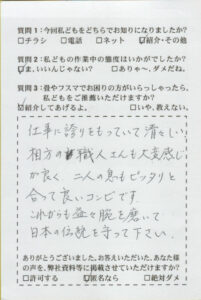 質問1：今回私どもをどちらでお知りになりましたか?
□チラシ □電話 □ネット ☑紹介・その他
質問2：私どもの作業中の態度はいかがでしたか?
☑ま、いいんじゃない? □ありゃ〜、ダメだね。
質問3：畳やフスマでお困りの方がいらっしゃったら、
私どもをご推薦いただけますか?
☑紹介してあげるよ。 □いや、教えない。
仕事に誇りをもっていて清々しい
相方の職人さんも大変感じ
が良く 二人の息もピッタリと
合って良いコンビです。
これからも益々腕を磨いて
日本の伝統を守って下さい。
ありがとうございました。お答えいただいた、あなた様
の声を、弊社資料等に掲載させていただけますか?
□許可する ☑匿名なら □絶対ダメ